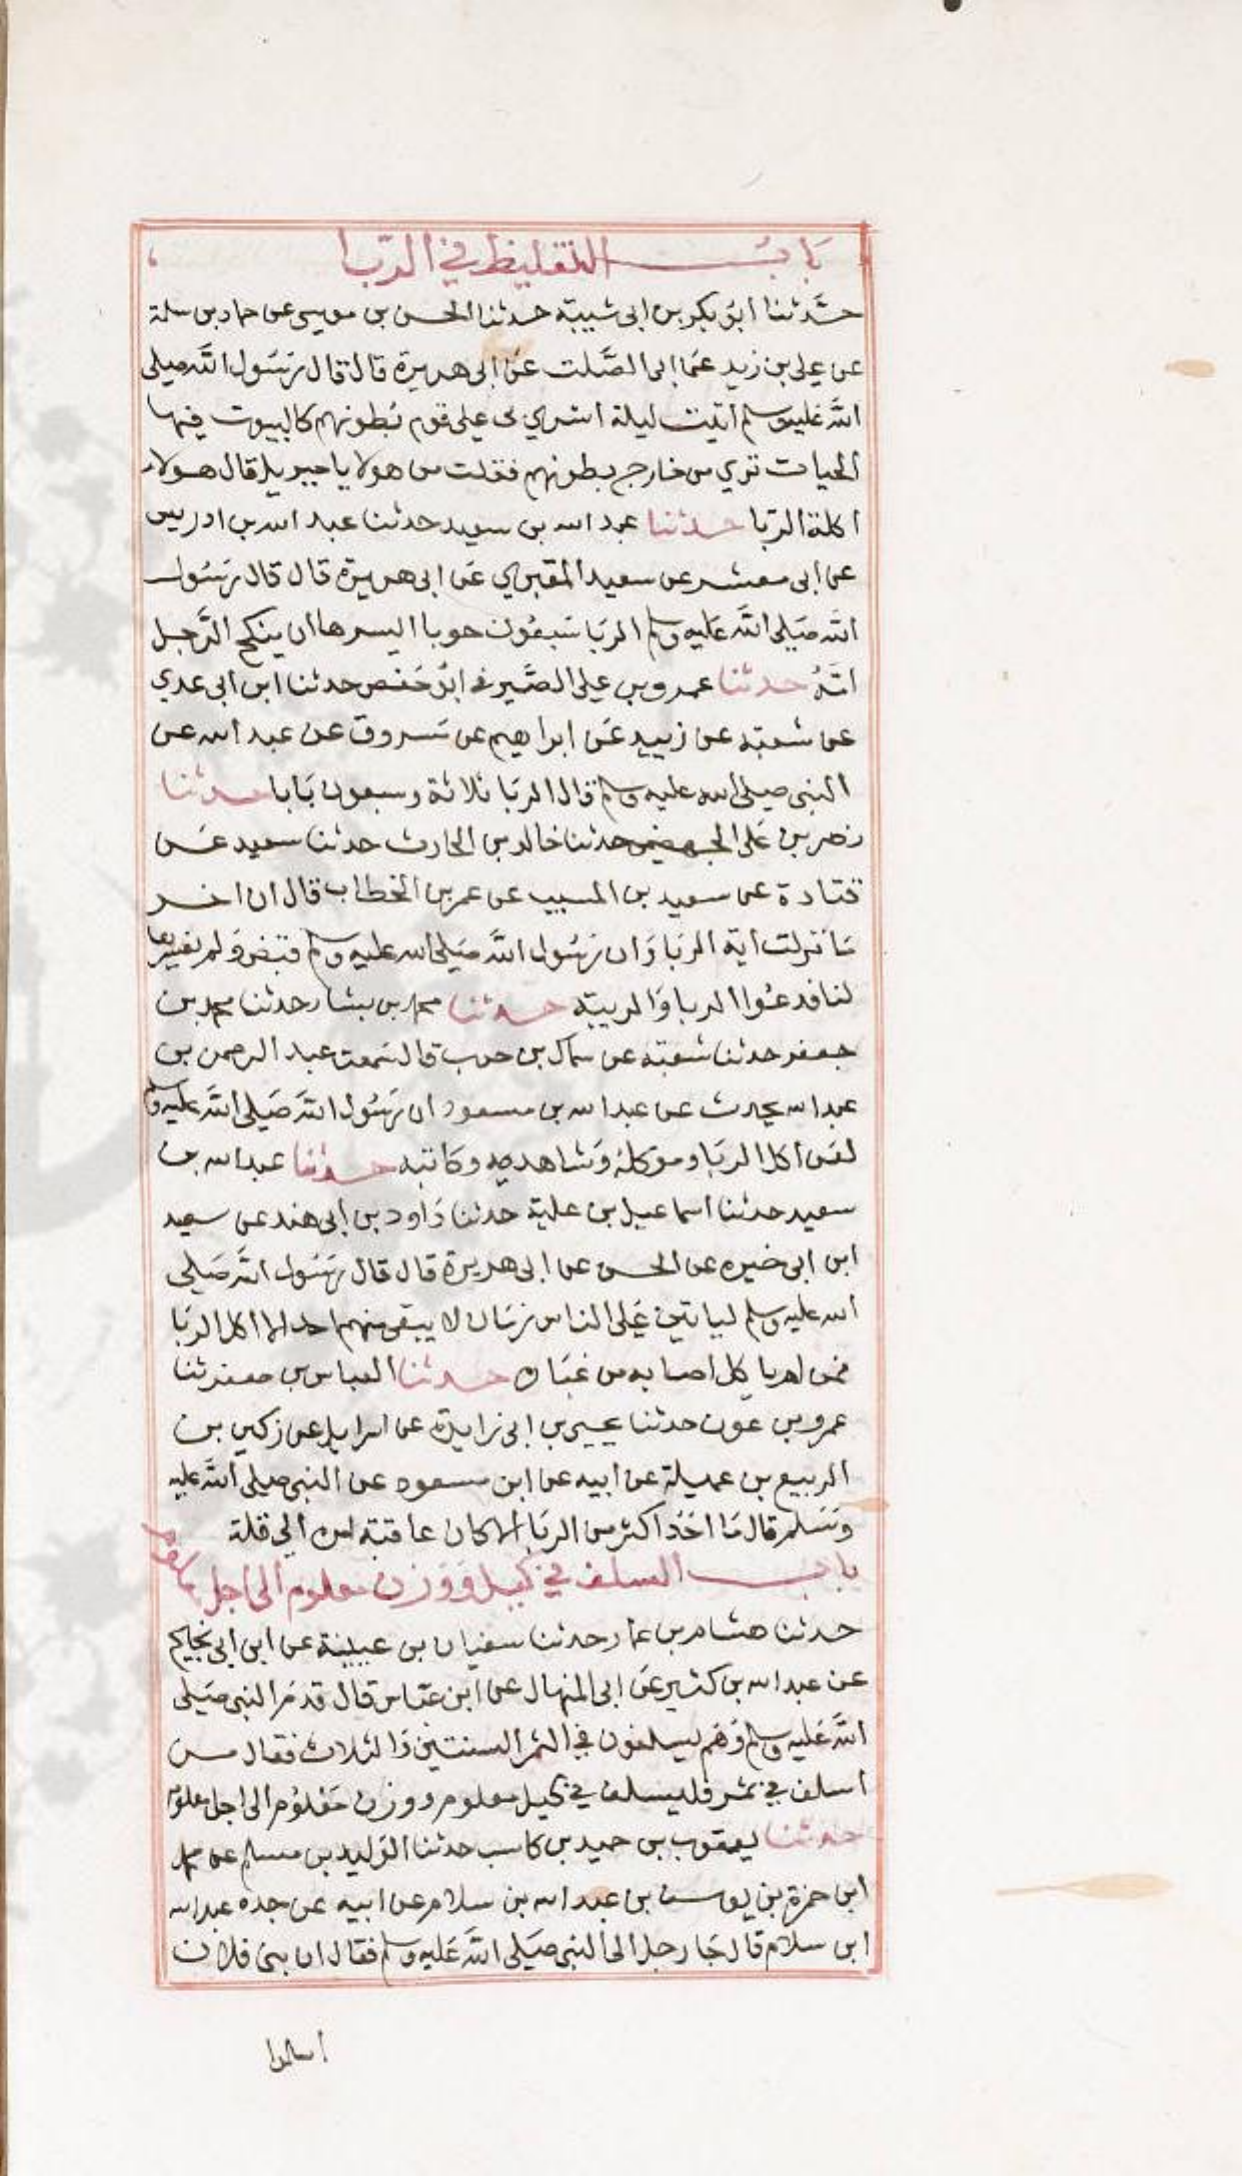 باب التغليظ في الربا
حدثنا ابو بكر بن ابى شيبة حدثنا الحسن بن موسى عن حماد بن سلمة
عن على بن زيد عن ابى الصلت عن ابى هريرة قال قال رسول الله صلى
الله عليه وسلم اتيت ليلة اسري بى على قوم بطونهم كالبيوت فيها
الحيات تري من خارج بطونهم فقلت من هولا يا جبريل قال هولاء
اكلة الربا حدثنا عبد الله بن سعيد حدثنا عبد الله بن ادريس
عن ابى معشر عن سعيد المقبري عن ابى هريرة قال قال رسول
الله صلى الله عليه وسلم الربا سبعون حوبا ايسرها ان ينكح الرجل
امه حدثنا عمرو بن على الصيرفى ابو حفص حدثنا ابن ابى عدي
عن شعبة عن زبيد عن ابراهيم عن مسروق عن عبد الله عن
النبى صلى الله عليه وسلم قال الربا ثلاثة وسبعون بابا حدثنا
نصر بن على الجهضمى حدثنا خالد بن الحارث حدثنا سعيد عن
قتادة عن سعيد بن المسيب عن عمر بن الخطاب قال ان اخر
ما نزلت اية الربا وان رسول الله صلى الله عليه وسلم قبض ولم يفسرها
لنا فدعوا الربا والريبة حدثنا محمد بن بشار حدثنا محمد بن
جعفر حدثنا شعبة عن سماك بن حرب قال سمعت عبد الرحمن بن
عبد الله يحدث عن عبد الله بن مسعود ان رسول الله صلى الله عليه وسلم
لعن اكل الربا وموكله وشاهديه وكاتبه حدثنا عبد الله بن
سعيد حدثنا اسماعيل بن علية حدثنا داود بن ابى هند عن سعيد
ابن ابى خيره عن الحسن عن ابى هريرة قال قال رسول الله صلى
الله عليه وسلم لياتين على الناس زمان لا يبقى منهم احد الا اكل الربا
فمن لم ياكل اصابه من غباره حدثنا العباس بن جعفر ثنا
عمرو بن عون حدثنا يحيى بن ابى زايدة عن اسرايل عن زكين بن
الربيع بن عميلة عن ابيه عن ابن مسعود عن النبى صلى الله عليه
وسلم قال ما احد اكثر من الربا الا كان عاقبة امره الى قلة
باب السلف في كيل ووزن معلوم الى اجل معلوم
حدثنا هشام بن عمار حدثنا سفيان بن عيينة عن ابن ابى نجيح
عن عبد الله بن كثير عن ابى المنهال عن ابن عباس قال قدم النبى صلى
الله عليه وسلم وهم يسلفون في التمر السنتين والثلاث فقال من
اسلف في تمر فليسلف في كيل معلوم ووزن معلوم الى اجل معلوم
حدثنا يعقوب بن حميد بن كاسب حدثنا الوليد بن مسلم عن محمد
ابن حمزة بن يوسف بن عبد الله بن سلام عن ابيه عن جده عبد الله
ابن سلام قال جا رجل الى النبى صلى الله عليه وسلم فقال ان بنى فلان
اسلموا